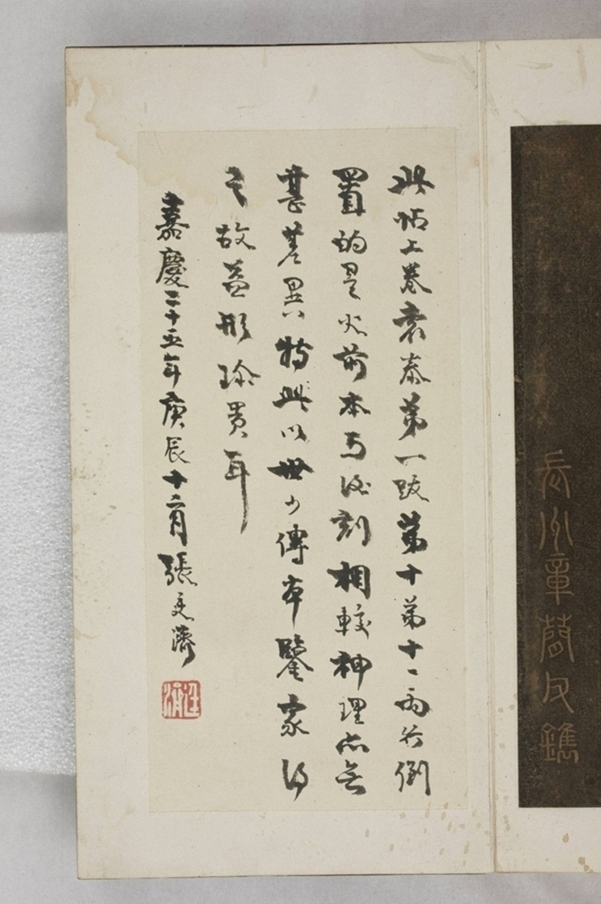 長洲章簡父鐫
此帖上卷袁泰第一跋第十第十一兩行倒
置的是火前本与後刻相較神理亦無
甚差異特此以世少傳本鑒家得
之故益形珍貴耳
嘉慶二十五年庚辰十二月張廷濟
廷濟